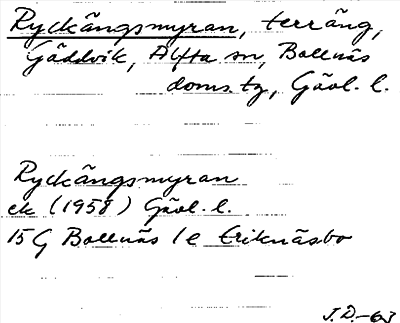 Ryckängsmyran, terräng,
Gäddvik, Alfta sn, Bollnäs
doms. tg, Gävl. l.
Ryckängsmyran
ek (1958) Gävl. l.
15 G Bollnäs 1 e Eriknäsbo
J.D.-63